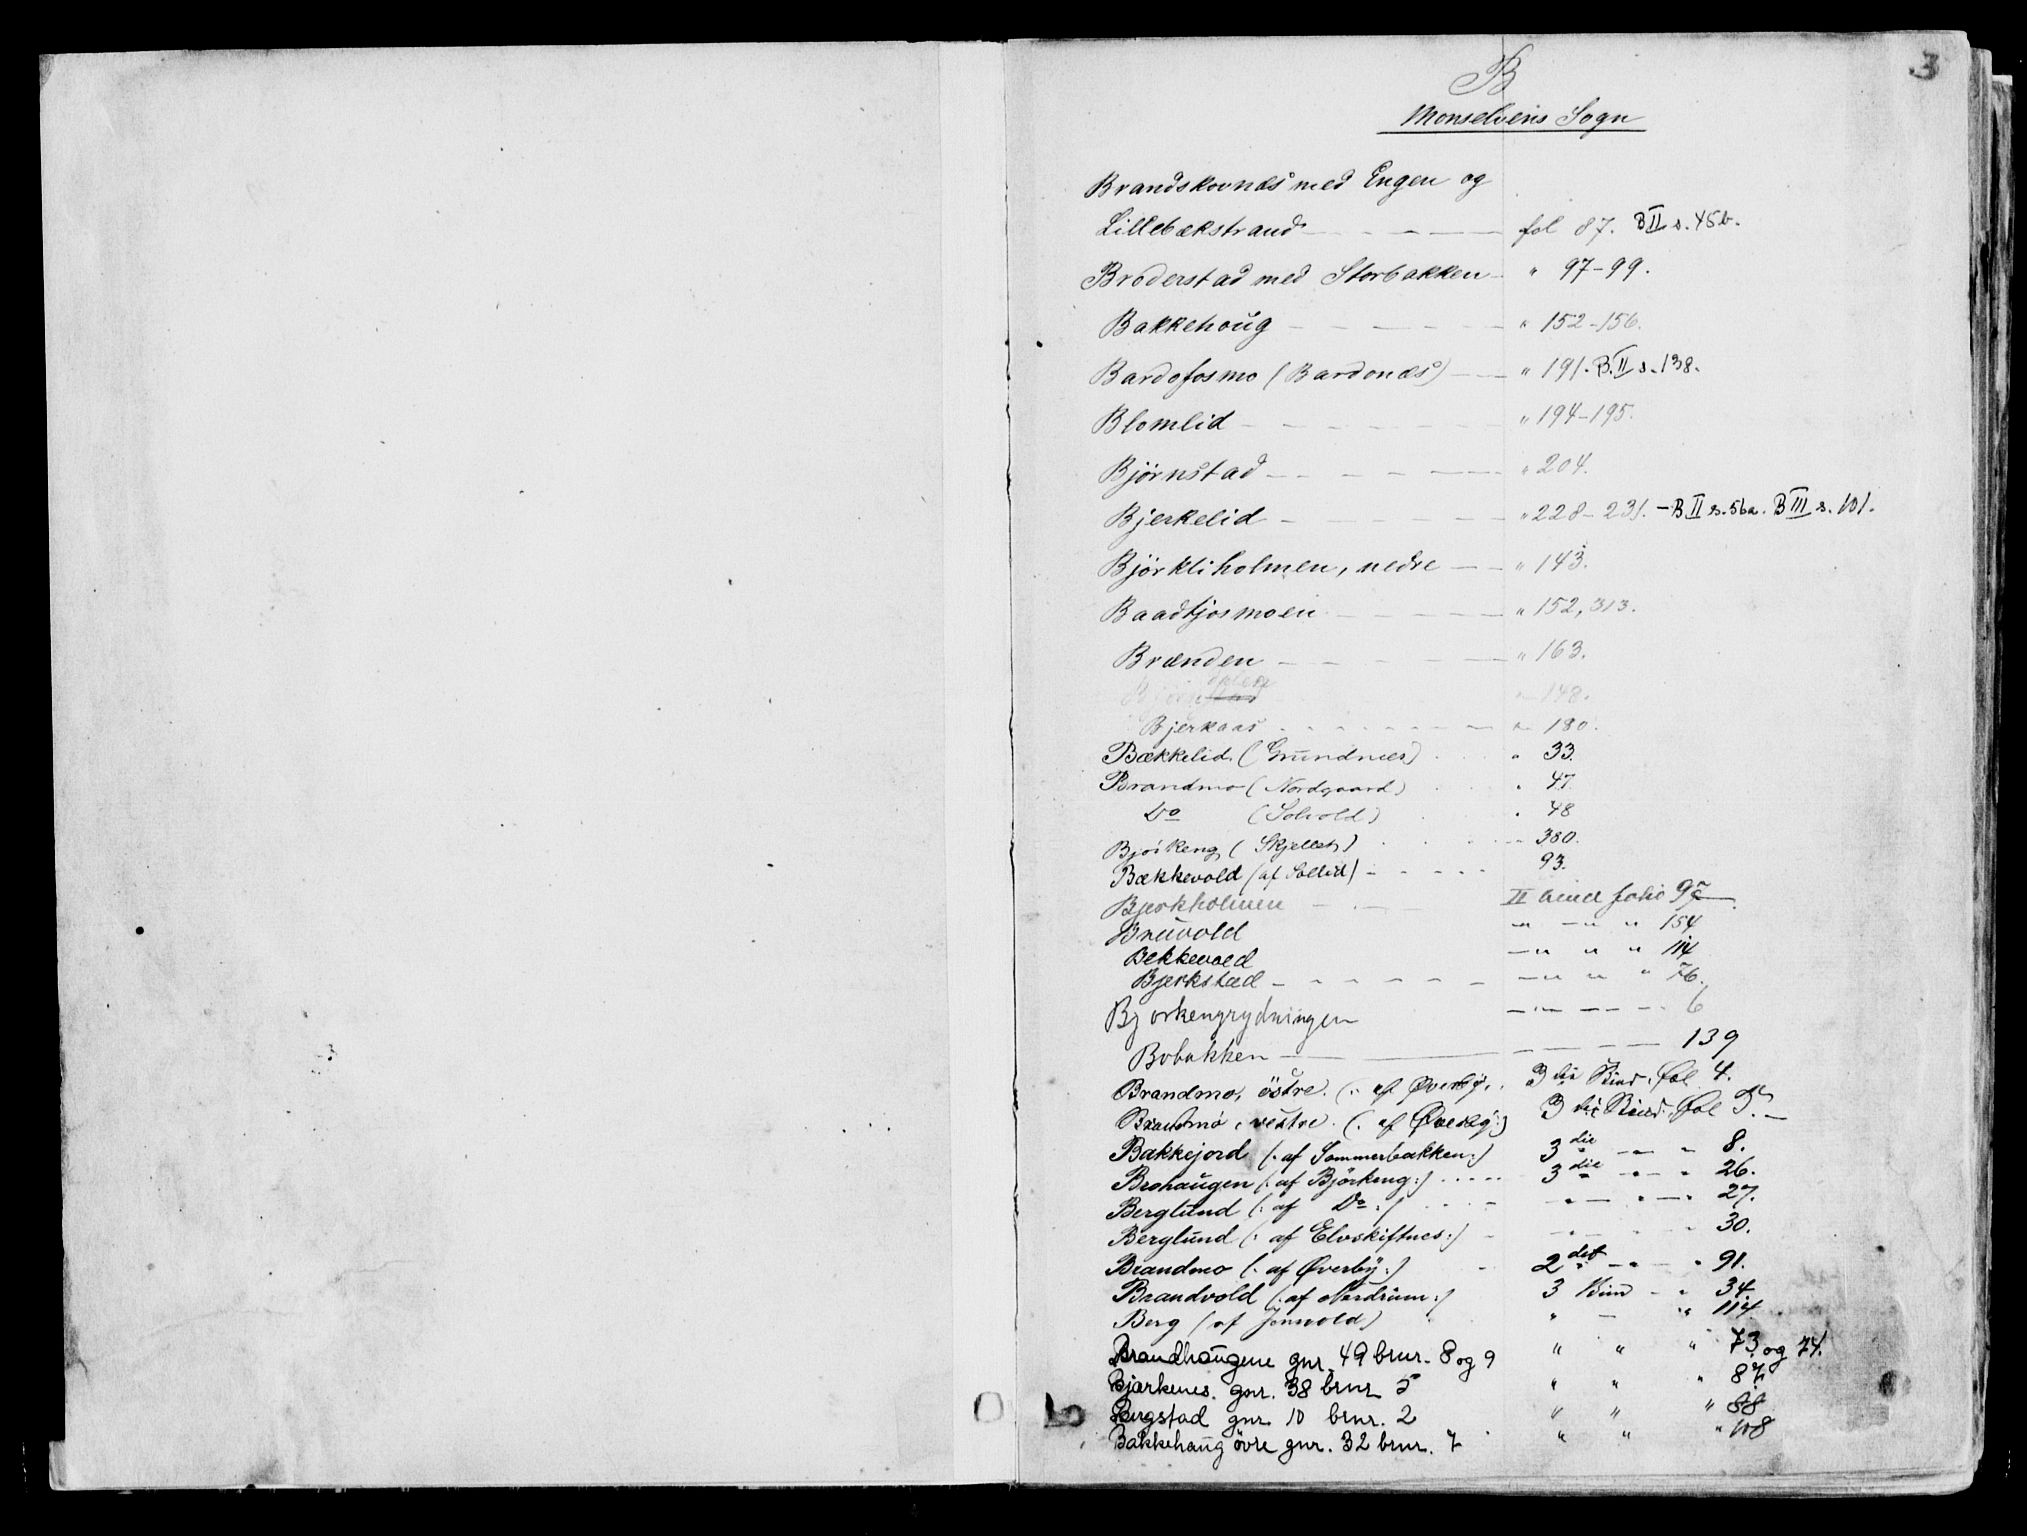 3
B
Monselvens Sogn
Brandskovnæs med Engen og
Lillebækstrand fol 87. B II s. 45b.
Broderstad med Storbakken " 97-99.
Bakkehoug " 152-156.
Bardofosmo (Bardonæs) " 191. B. II s. 138.
Blomlid " 194-195.
Bjørnstad " 204.
Bjerkelid " 228-231. - B II s. 56a. B III s. 101.
Björkliholmen, nedre " 143.
Baadtjosmoen " 152, 313.
Brænden " 163.
" 148.
Bjerkaas " 180.
Bækkelid (Grundnæs) " 33.
Brandmo (Nordgaard) " 47.
Do (Solvold) " 48
Bjørkeng (Skjellet) " 380.
Bækkevold (af Sollid) 93.
Bjerkholmen II bind folio 95
Bruvold " " " 154
Bekkevold " " " 114
Bjerkstad " " " 76.
Bjorkengrydningen " 6
Bobakken 139
Brandmo, östre (: af Øverby 3die Bind. Fol 4.
Brandmo, vestre. (: af Øverby:) 3die Bind. Fol 5.
Bakkejord (: af Sommerbakken:) 3die " " 8.
Brohaugen (: af Björkeng:) 3die " " 26.
Berglund (: af Do :) " " " 27.
Berglund (: af Elvskiftnes:) " " " 30.
Brandmo (: af Øverby:) 2det " " 91.
Brandvold (: af Nordrum:) 3 Bind " 34
Berg (af Jenvold) " " 114
Brandhaugene gnr. 49 brnr. 8 og 9 " " " 73 og 74.
Bjørkenes. gnr. 38 brnr 5 " " " 87
Bergstad gnr. 10 brnr. 2 " " " 88
Bakkehaug övre gnr. 32 brnr. 7 " " " 108